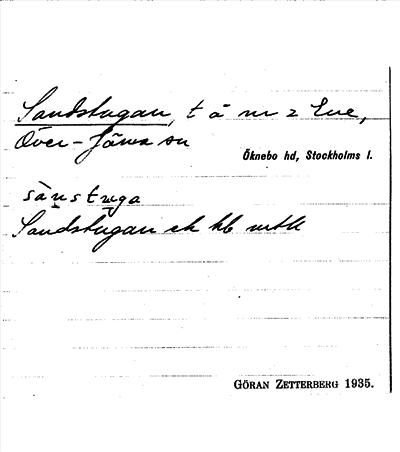 Sandstugan, t å nr 2 Ene,
Över-Järna sn
Öknebo hd, Stockholms l.
sànstuga
Sandstugan ek kb mtlk
GÖRAN ZETTERBERG 1935.